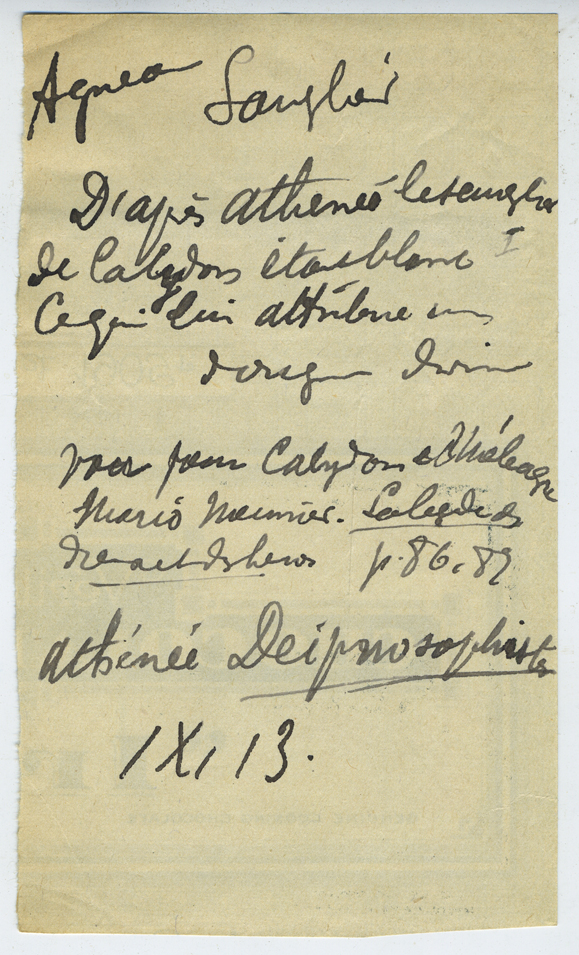 Agneau Sanglier
D'après athénée le sanglier
de Calydon était blanc I
Ce qui lui attribue une
origine divine
voir pour Calydon et Méléagre
Mario Meunier. La légende
des dieux et des heros p. 86, 89
athénée Deipnosophistes
IX, 13.